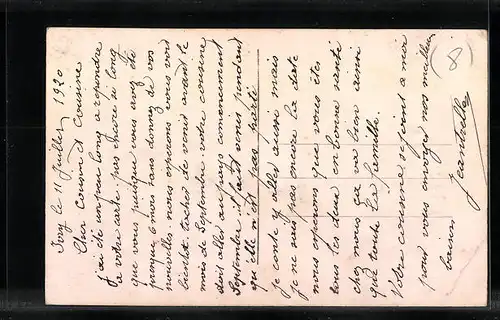 Ivry le 11 Juillet 1920
Cher Cousin et Cousine
j'ai été un peu long a repondre
a votre carte. pas encore si long
que vous puisque vous avez été
presque 6 mois sans donnez de vos
nouvelle. nous esperons vous voir
bientot tachez de venir avant le
mois de Septembre votre cousine
doit aller au pays commencement
Septembre il faut vous pendant
qu'elle n'est pas parti.
je conte y aller aussi mais
je ne sais pas encore la date
nous esperons que vous êtes
tous les deux en bonne santé
chez nous ça va bien ainsi
que toute la famille.
Votre cousine se joint a moi
pour vous envoyez nos meilleurs
baisers